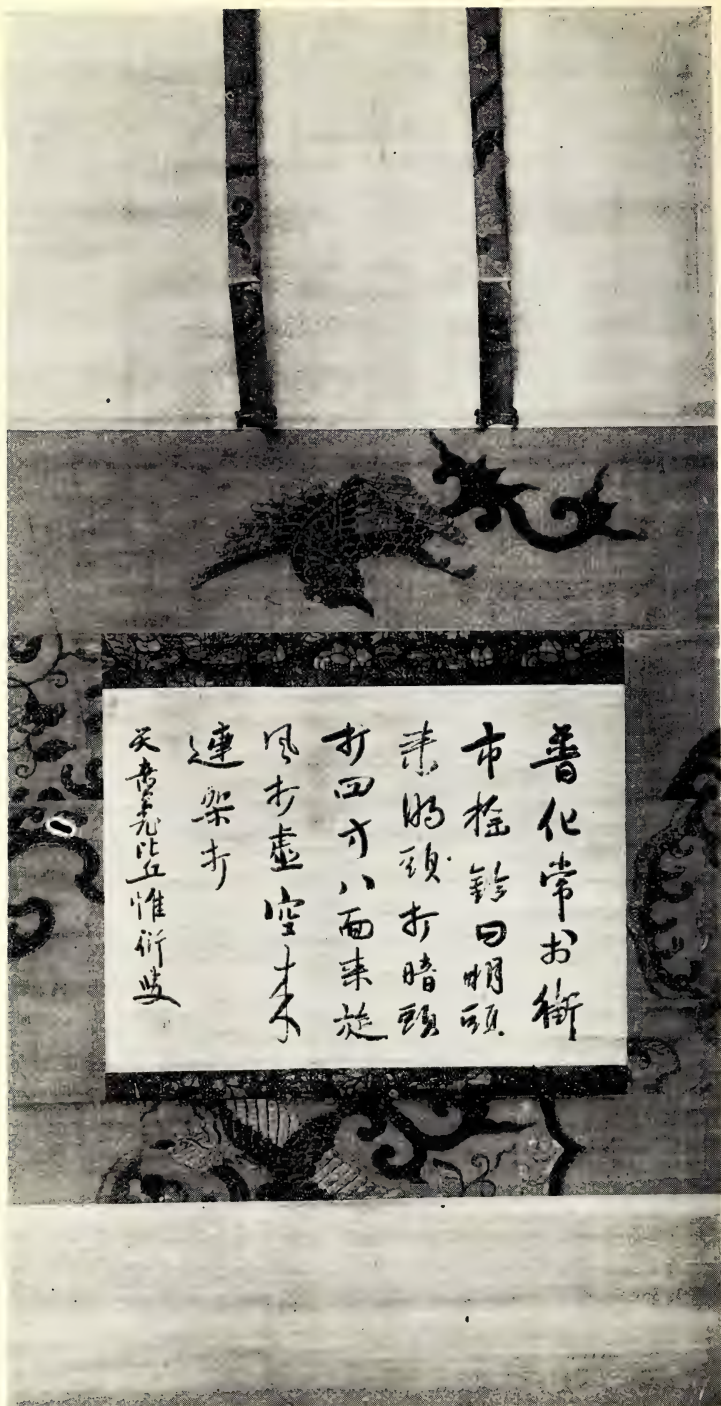 普化常於街
市搖鈴曰明頭
来明頭打暗頭
打四方八面来旋
風打虛空来
連架打
天童老比丘惟衍